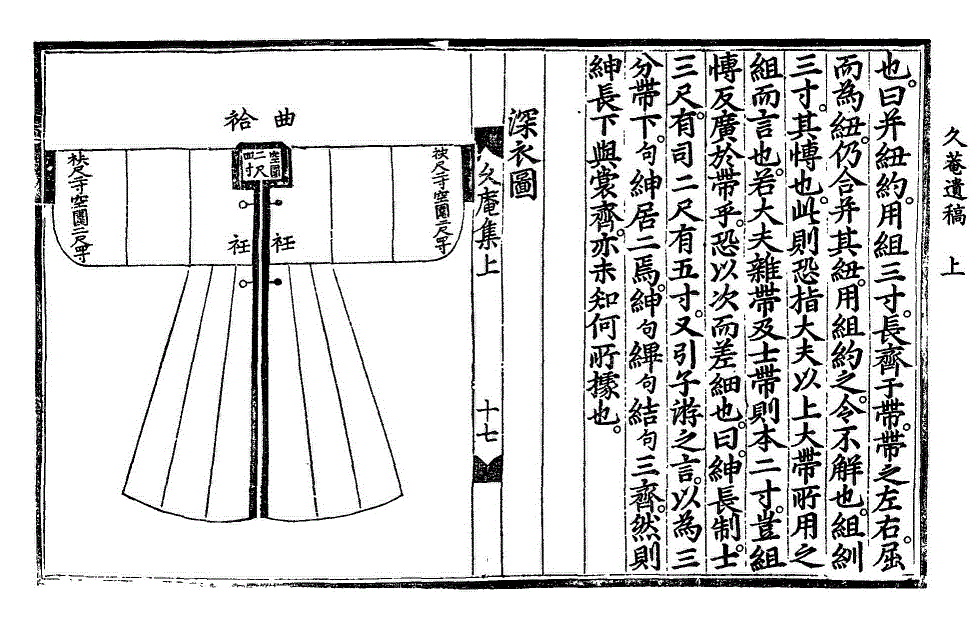 久菴遺稿 上
也。曰并紐約。用組三寸。長齊于帶。帶之左右。屈
而為紐。仍合并其紐。用組約之。令不解也。組紃
三寸。其博也。此則恐指大夫以上大帶所用之
組而言也。若大夫雜帶及士帶則本二寸。豈組
博反廣於帶乎。恐以次而差細也。曰。紳長制。士
三尺。有司二尺有五寸。又引子游之言。以為三
分帶下。句紳居二焉。紳句縪句結句三齊。然則
紳長下與裳齊。亦未知何所據也。
深衣圖
久庵集上
十七
曲袷
空圍二尺四寸
袂尺寸空圍二尺四寸
袂尺寸空圍二尺四寸
衽
衽